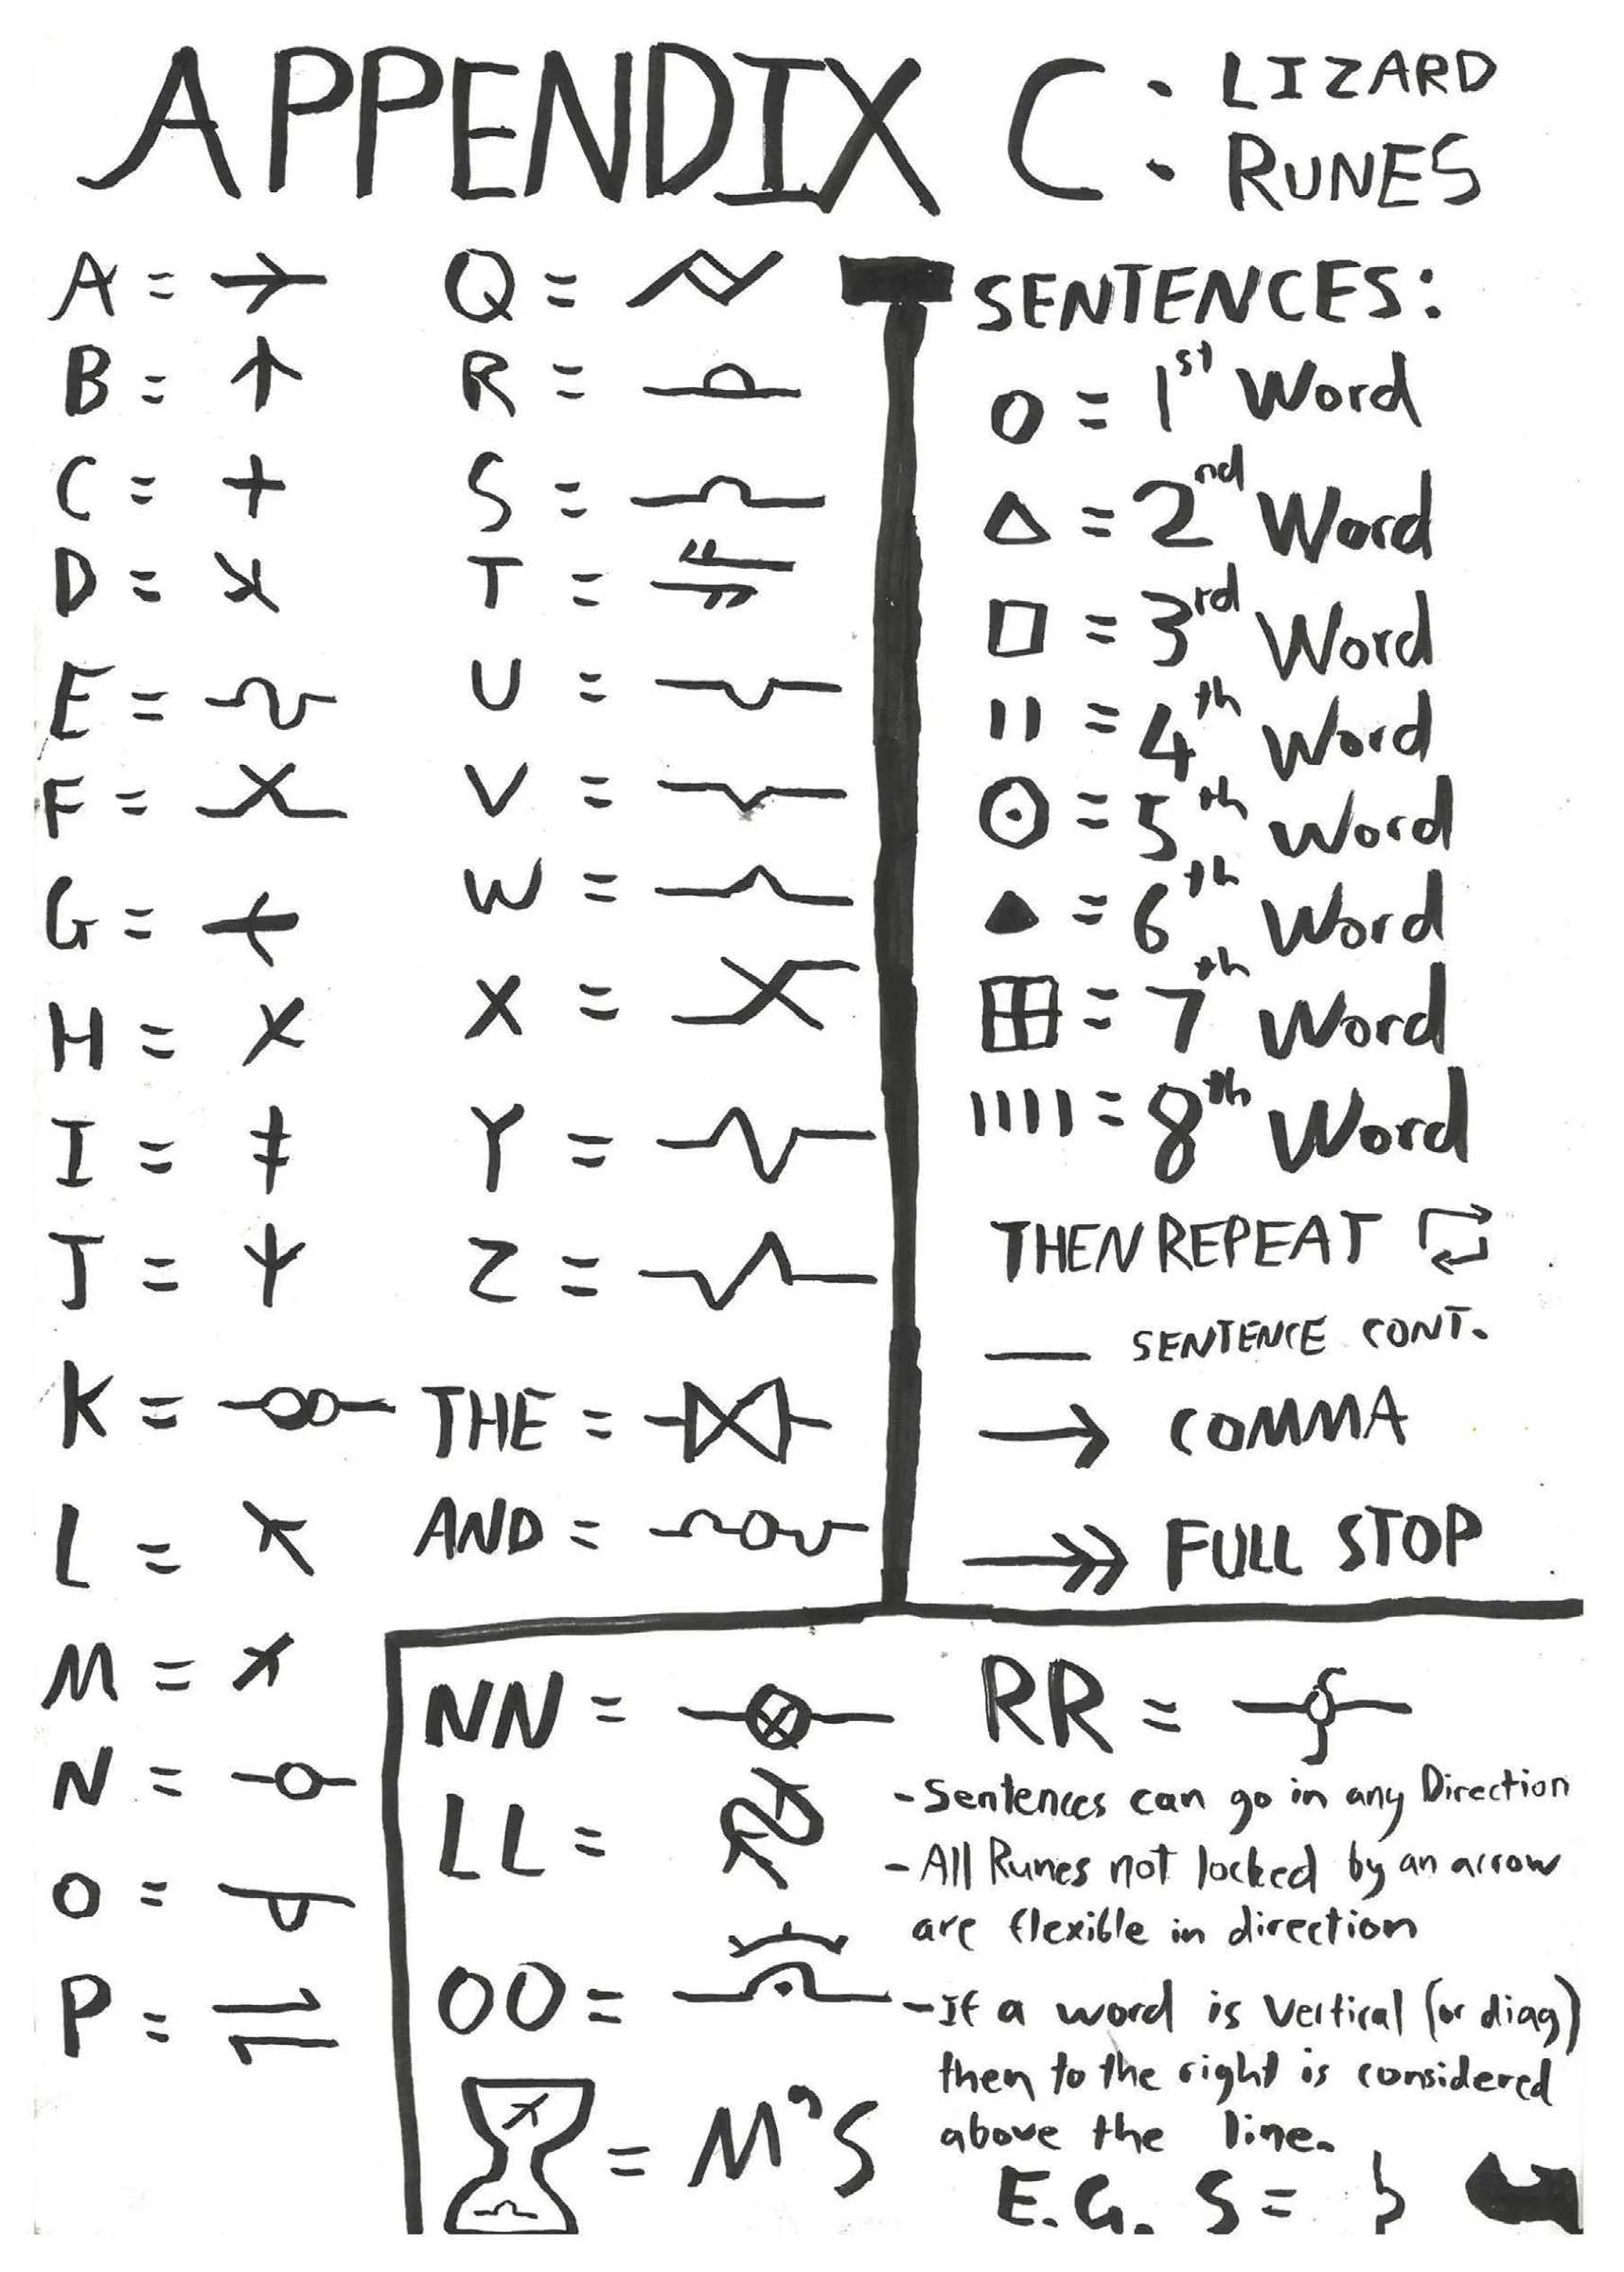 APPENDIX C: LIZARD RUNES
A =
B =
C =
D =
E =
F =
G =
H =
I =
J =
K =
L =
M =
N =
O =
P =
Q =
R =
S =
T =
U =
V =
W =
X =
Y =
Z =
THE =
AND =
SENTENCES:
= 1st Word
= 2nd Word
= 3rd Word
= 4th Word
= 5th Word
= 6th Word
= 7th Word
= 8th Word
THEN REPEAT
SENTENCE CONT.
COMMA
FULL STOP
NN =
LL =
OO =
= M'S
RR =
- Sentences can go in any Direction
- All Runes not locked by an arrow
are flexible in direction
- If a word is Vertical (or diag)
then to the right is considered
above the line.
E.G. S =